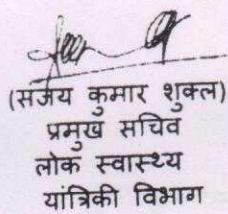 (संजय कुमार शुक्ल)
प्रमुख सचिव
लोक स्वास्थ्य
यांत्रिकी विभाग